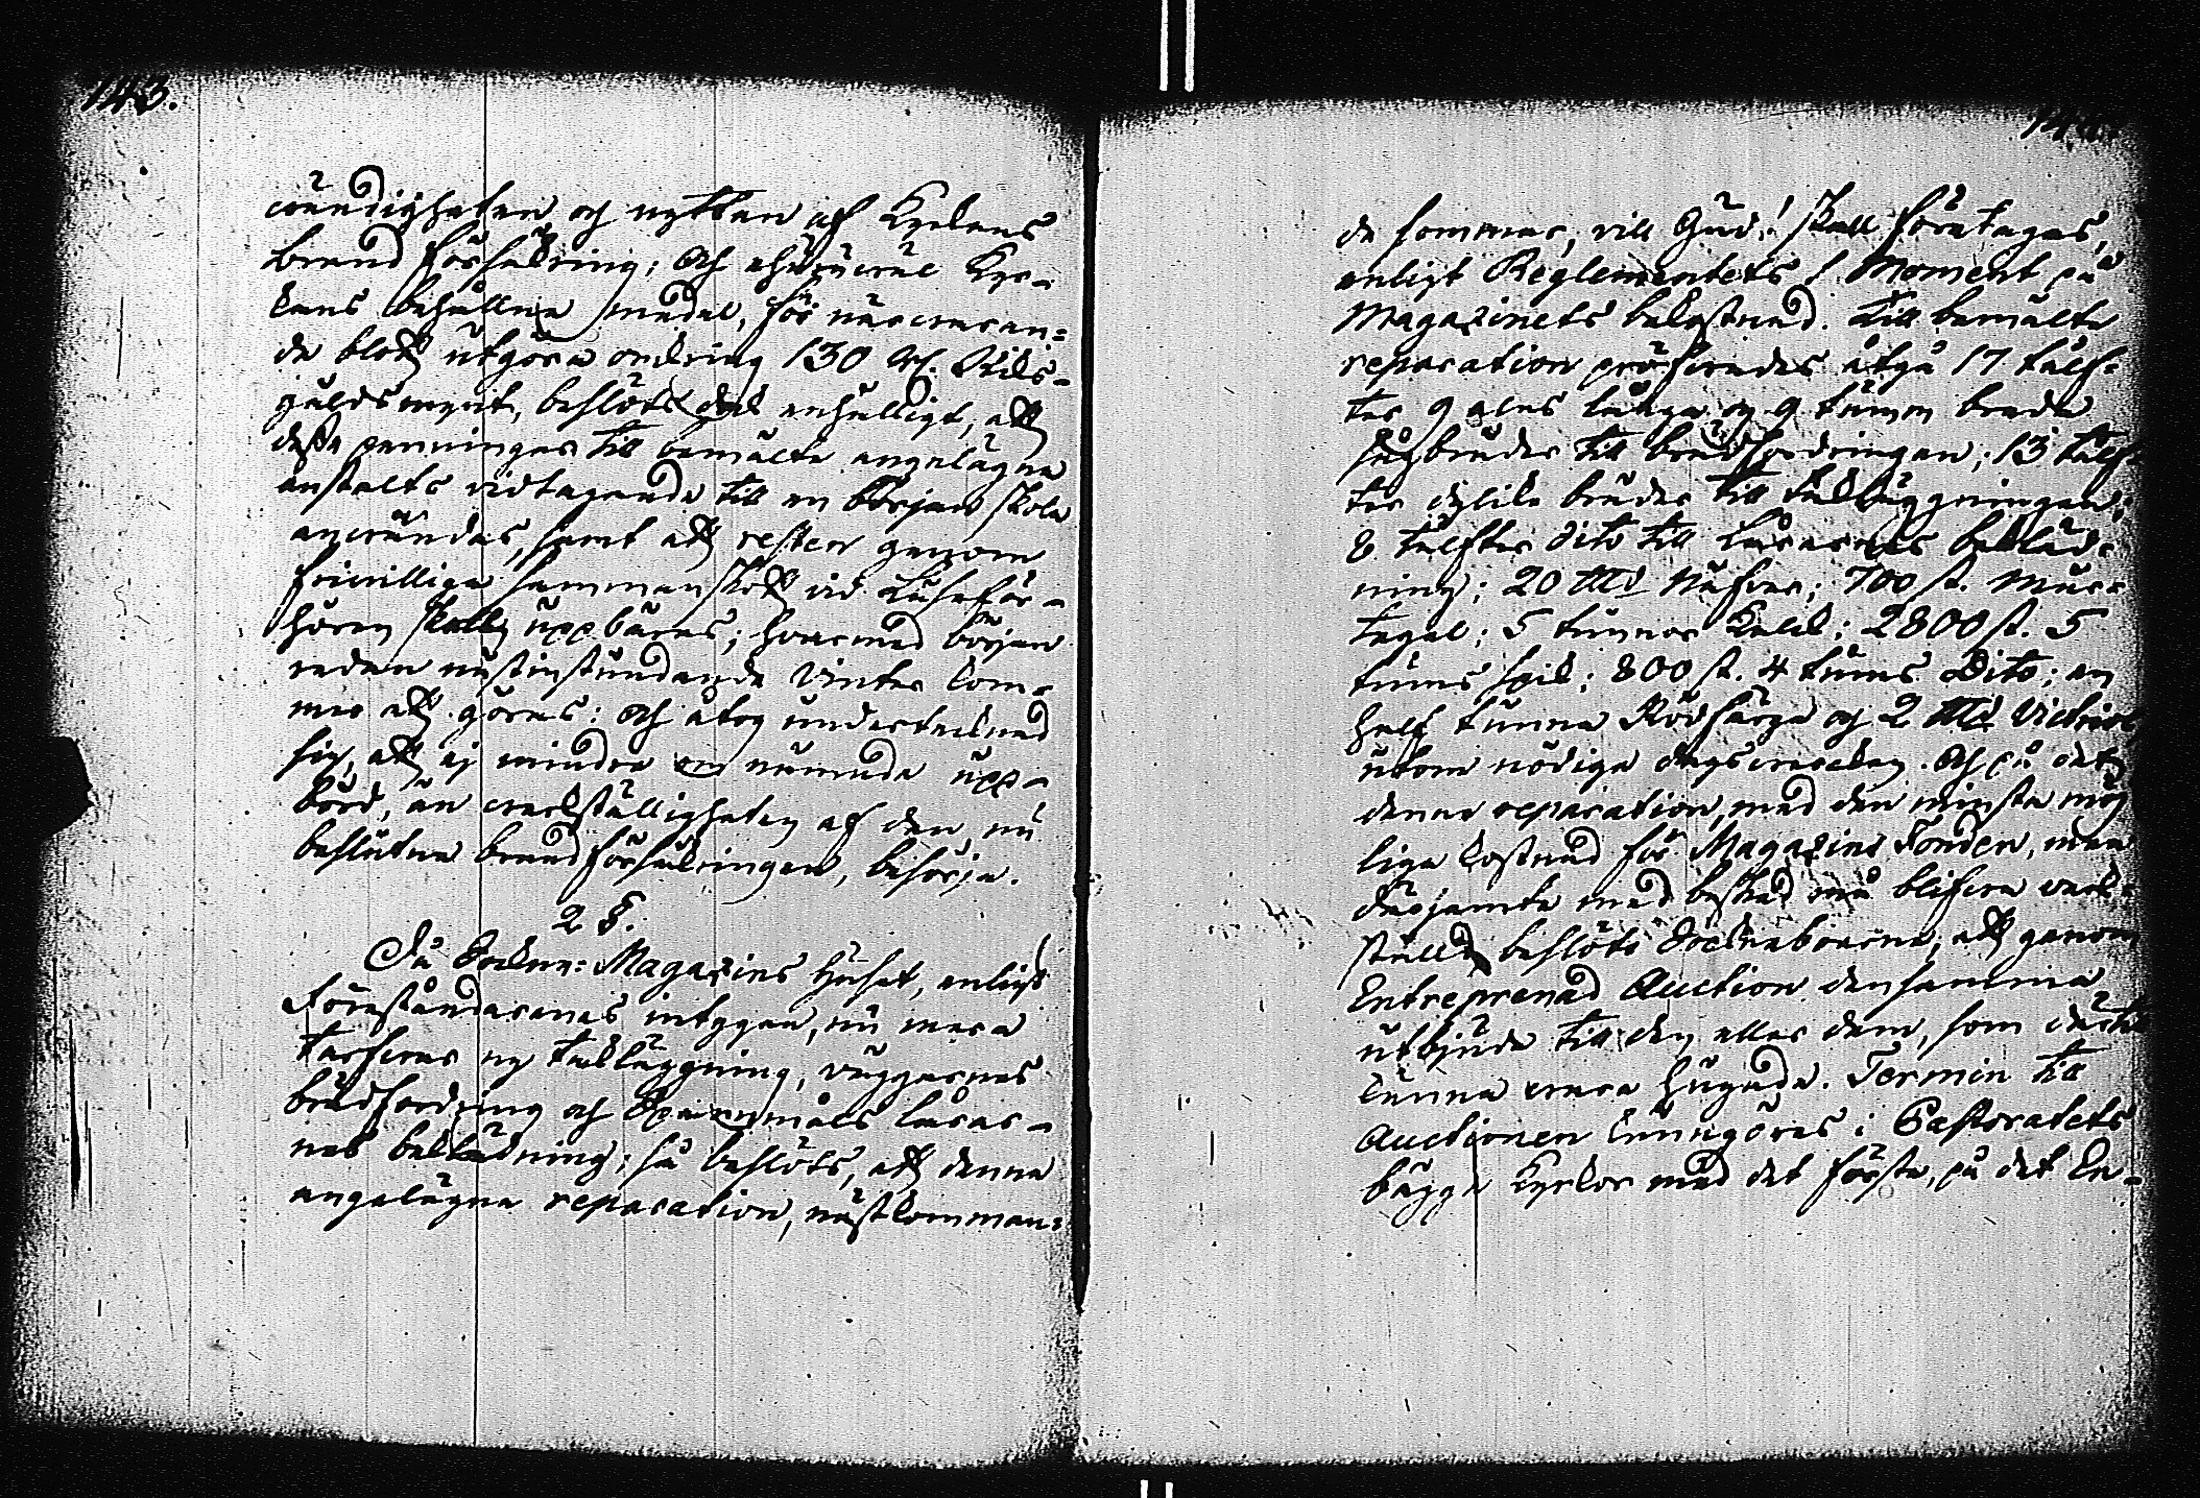 143.
wändigheten och nyttan af Kyrkans
Brand försäkring; Och ehuruwäl Kyr-
kans behållna medel, för närwaran=
de blott utgöra omkring 130 Rd. Riks-
gälds mynt, beslöts dock enhälligt, att
dessa penningar till bemälte angelägna
anstalts vidtagande till en början skola
användas, samt att resten genom
friwilliga sammanskott vid Husför-
hören skall uppbäras; hwarmed början
redan nästinstundande Vinter kom-
mer att göras: och åtog undertecknad
sig, att ej mindre om nämnde upp-
börd, än werkställigheten af den nu
beslutna brandförsäkringen, besörja.
2 §.
Då Sockne= Magazins Huset, enligt
Föreståndarenas intygan, nu mera
tarfwar ny takläggning, väggarnes
brädfordring och Spannmåls lårar-
nes beklädning; så beslöts, att denna
angelägna reparation, nästkomman=
de sommar, vill Gud! skall företagas,
enligt Reglementets 1 Moment på
Magazinets bekostnad. Till bemälte
reparation pröfwades åtgå 17 tålf-
ter 9 alns långa och 9 tums breda
sågbräder till brädfordringen; 13 tålf-
ter dylika bräder till takläggningen;
8 tålfter dito till Lårarnes bekläd-
ning; 20 Näfwer; 700 st. Mur-
tegel; 5 tunnor Kalk; 2800 st. 5
tums spik; 800 st. 4 tums Dito; en
half tunna Rödfärga och 2 Victriol
utom nödiga dagswerken. Och på det
denna reparation, med den minsta möj
liga kostnad för Magazins Fonden, men
därjemte med bestånd må blifwa werk-
ställd, beslöto Socknaboarne, att genom
Entreprenad Auction densamma
utbjuda till den eller dem, som därtill
kunna wara hugade. Termin till
Auctionen kungöres i Pastoratets
bägge Kyrkor med det första, på det En-